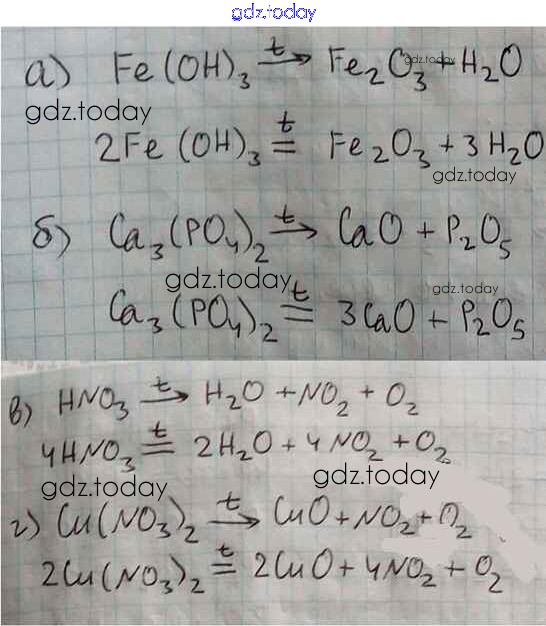 gdz.today
а) Fe(OH)₃ →ᵗ Fe₂O₃ + H₂O
gdz.today
gdz.today
2Fe(OH)₃ =ᵗ Fe₂O₃ + 3H₂O
gdz.today
б) Ca₃(PO₄)₂ →ᵗ CaO + P₂O₅
gdz.today
gdz.today
Ca₃(PO₄)₂ =ᵗ 3CaO + P₂O₅
в) HNO₃ →ᵗ H₂O + NO₂ + O₂
4HNO₃ =ᵗ 2H₂O + 4NO₂ + O₂
gdz.today
gdz.today
г) Cu(NO₃)₂ →ᵗ CuO + NO₂ + O₂
2Cu(NO₃)₂ =ᵗ 2CuO + 4NO₂ + O₂